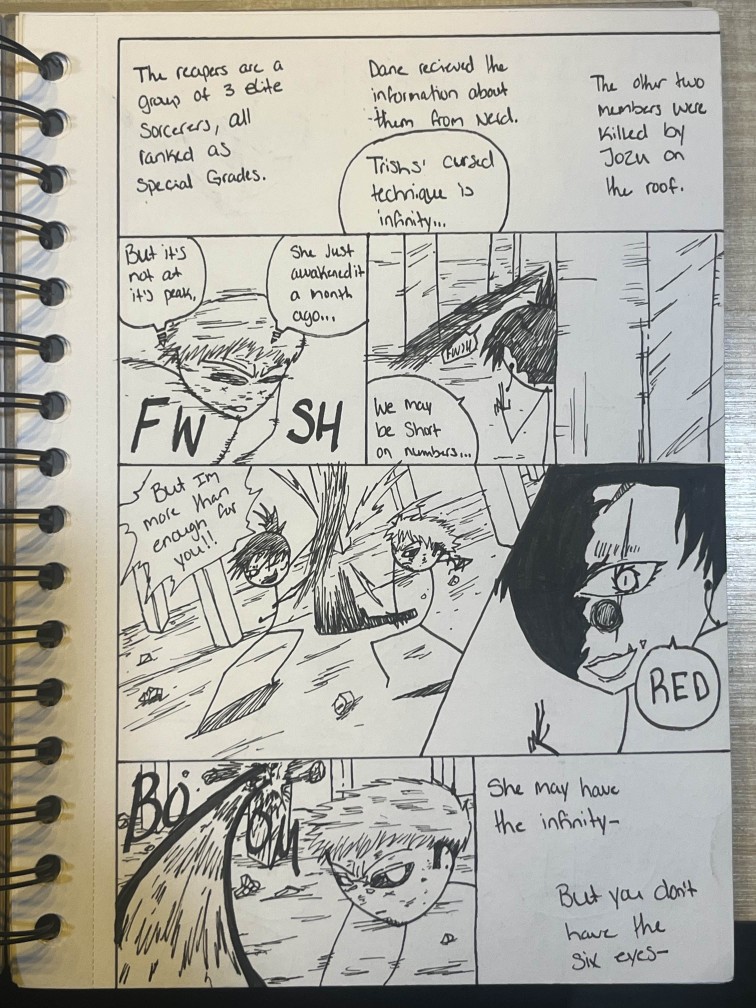 The reapers are a
group of 3 elite
Sorcerers, all
ranked as
Special Grades.
Dane recieved the
information about
them from Nerd.
The other two
members were
killed by
Jozu on
the roof.
Trishs' cursed
technique is
infinity...
But it's
not at
it's peak,
She just
awakened it
a month
ago...
FW SH
FWSH
We may
be short
on numbers...
But Im
more than
enough for
you!!
RED
BOOM
She may have
the infinity-
But you don't
have the
six eyes-